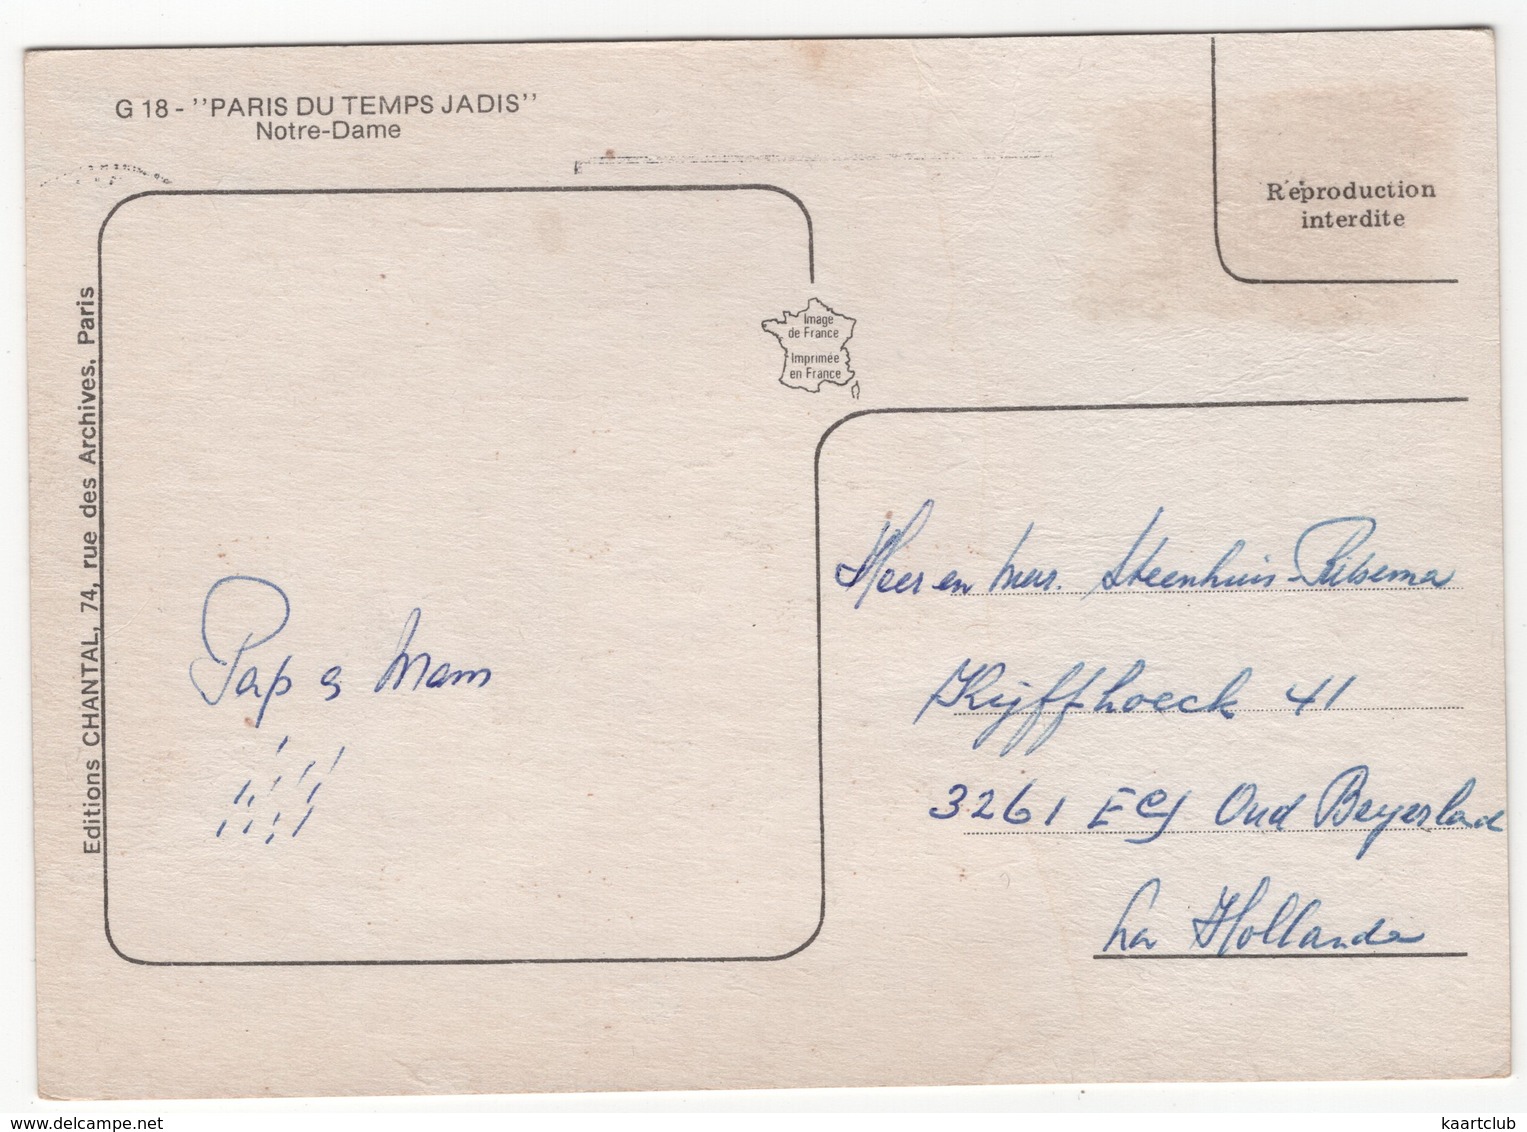 G 18 - ''PARIS DU TEMPS JADIS''
Notre-Dame
Reproduction
interdite
Editions CHANTAL, 74, rue des Archives. Paris
Image
de France
Imprimée
en France
Pap en Mam
Heer en Mevr. Steenhuis-Ritsema
Kijffhoeck 41
3261 Oud Beyerland
La Hollande
www.delcampe.net
kaartclub